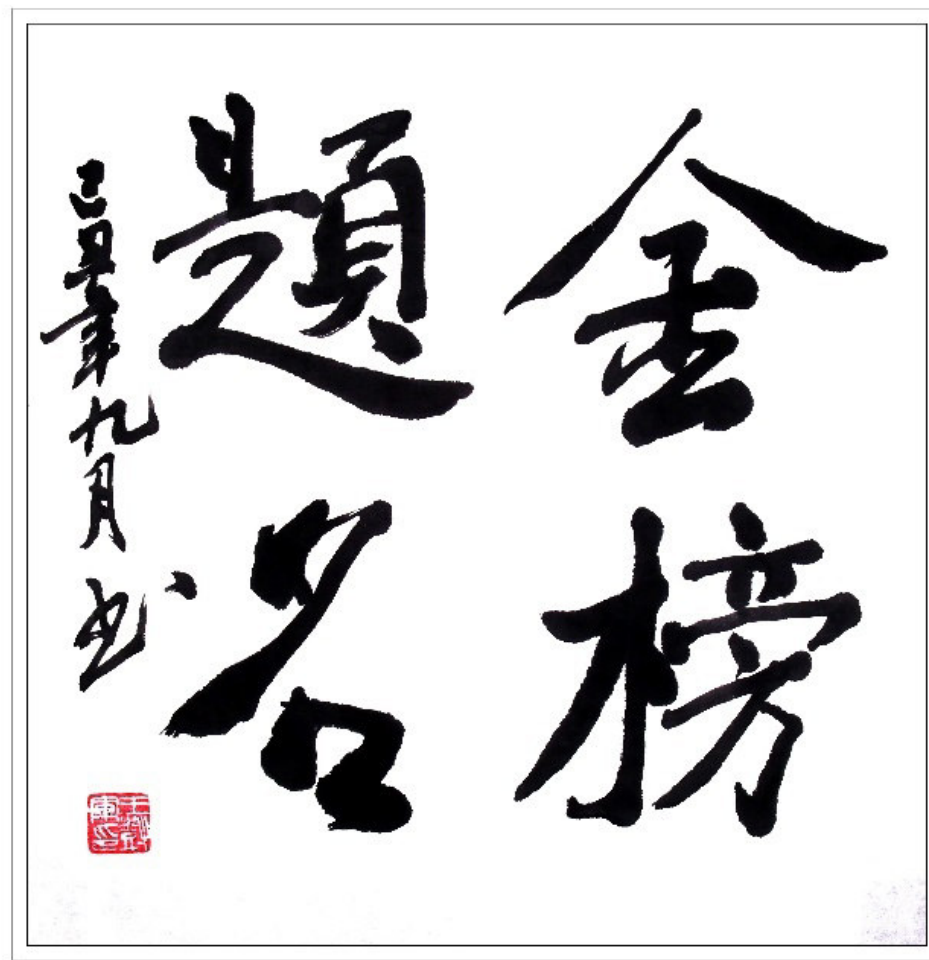 金榜
題名
己丑年九月书